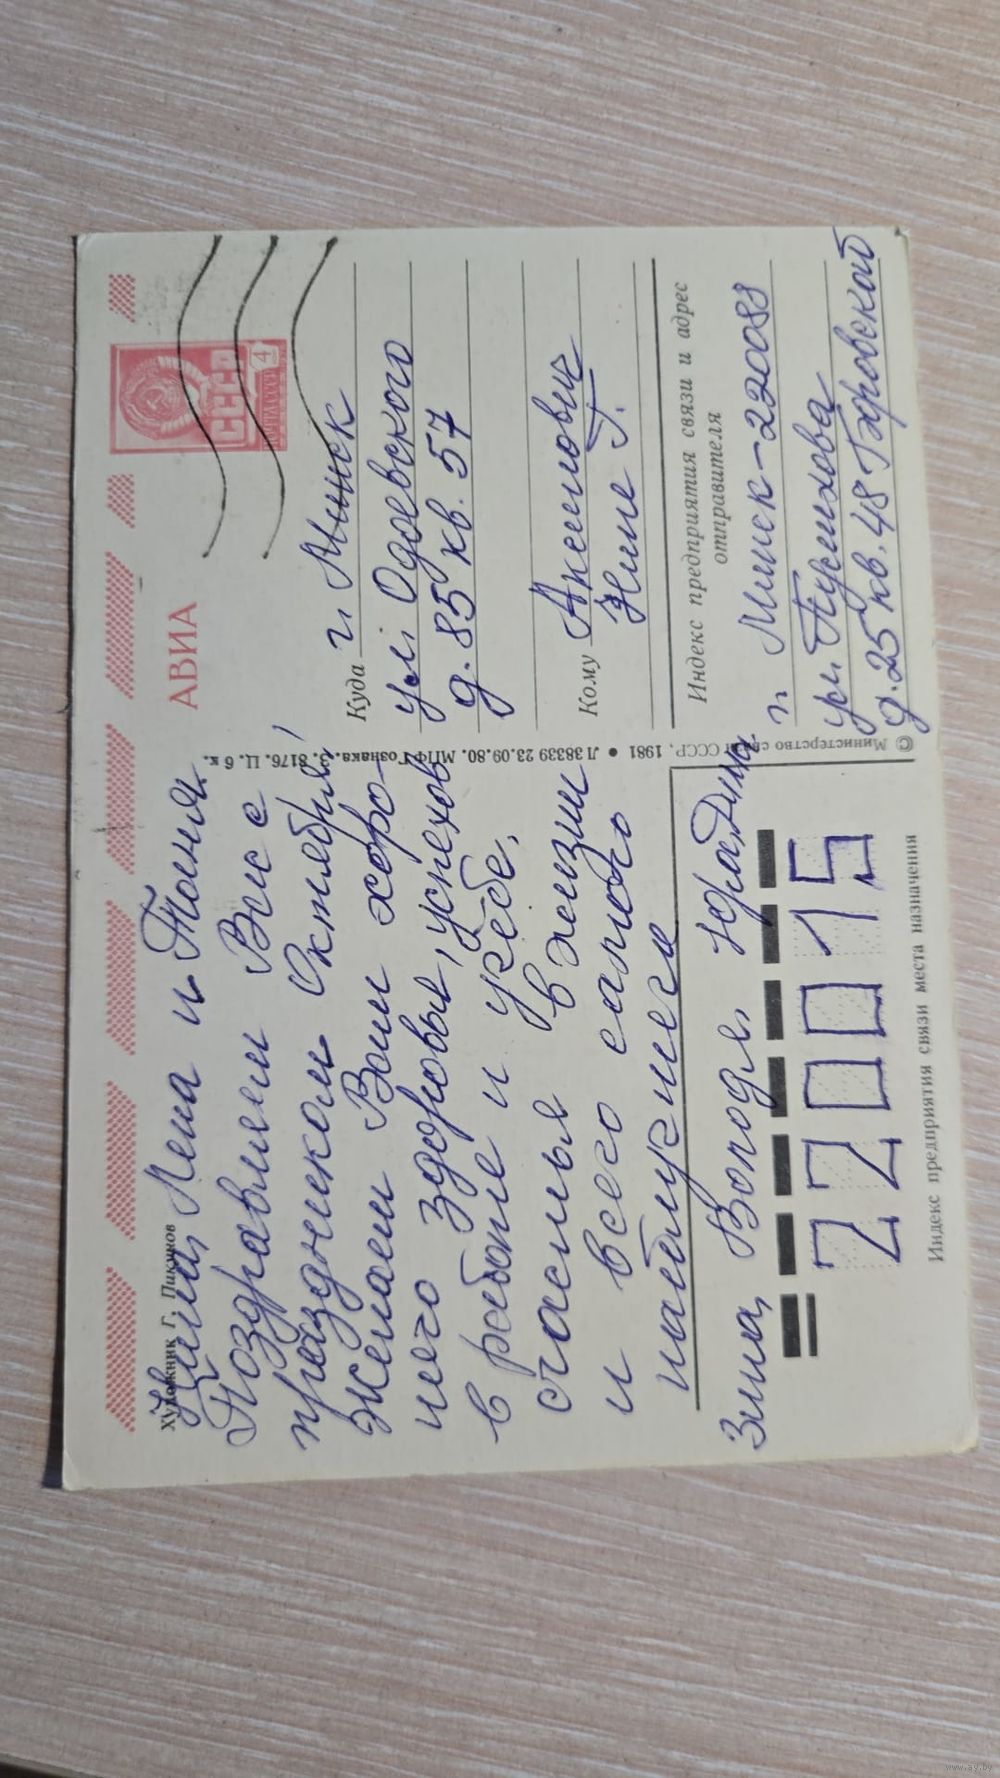 Художник Г. Пикунов
Нина, Лена и Таня.
Поздравляем Вас с
праздником Октября!
Желаем Вам хоро-
шего здоровья, успехов
в работе и учёбе,
счастья в жизни
и всего самого
наилучшего
Зина, Володя, Юра, Дима
220015
Индекс предприятия связи места назначения
© Министерство связи СССР, 1981 • Л 38339 23.09.80. МПФ Гознака. З. 8176. Ц. 6 к.
АВИА
СССР
ПОЧТА СССР
4
Куда г. Минск
ул. Одоевского
д. 85 кв. 57
Кому Акимович
Нине Г.
Индекс предприятия связи и адрес
отправителя
г. Минск-220088
ул. Пулихова
д. 25 кв. 48
www.ay.by